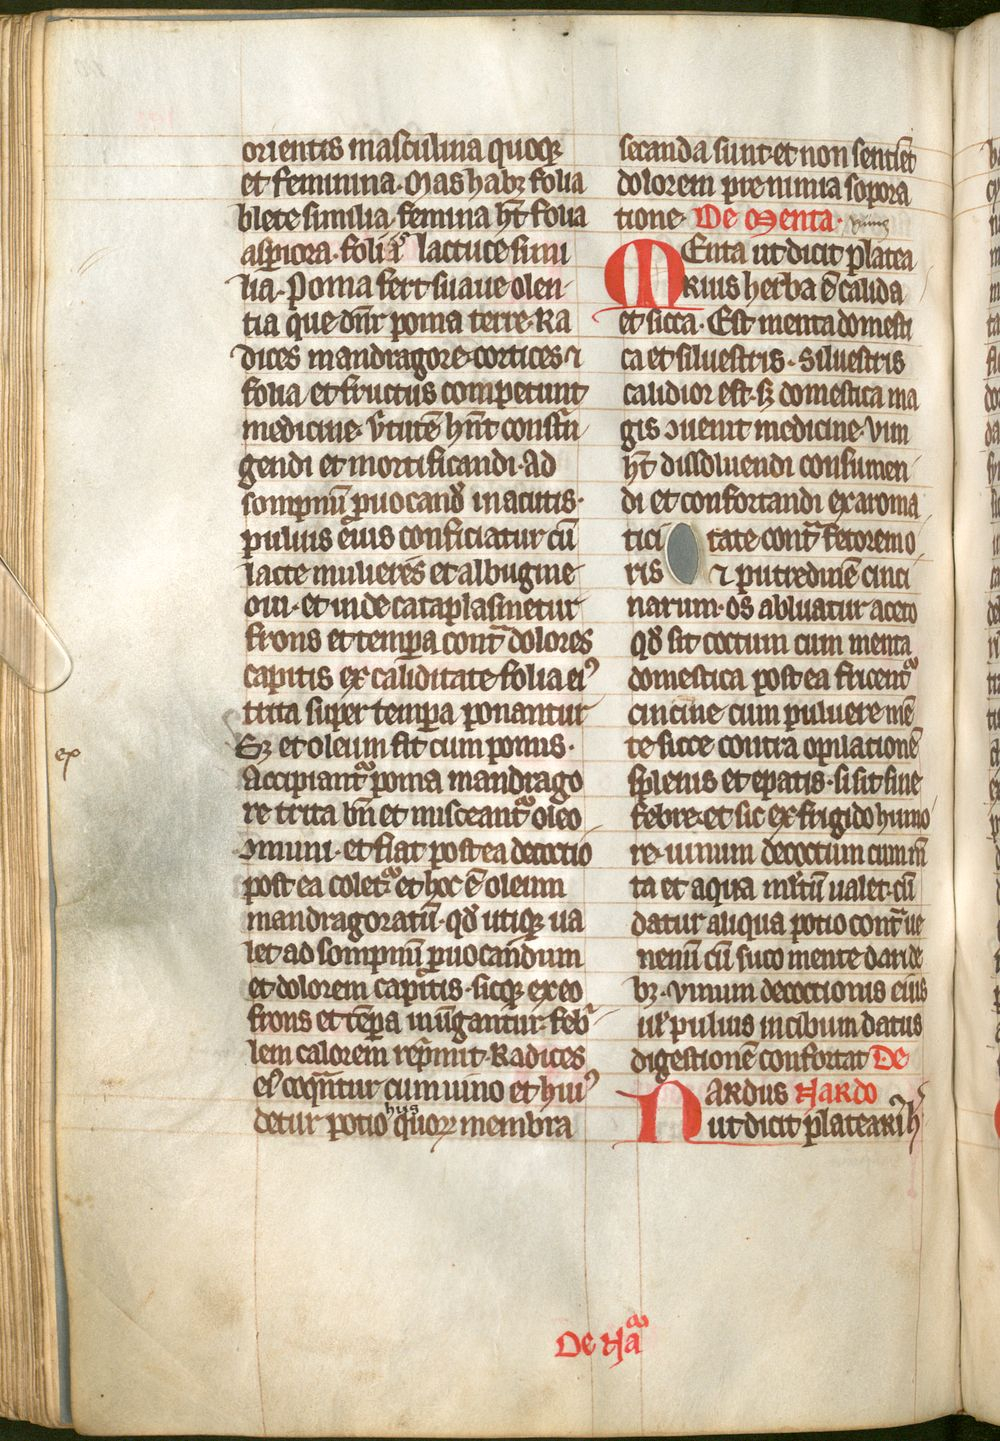 orientis masculina quoqꝫ
et feminina. Mas habꝫ folia
blete similia. femina hn̄t folia
aspiora. foliis lactuce simi
lia. Poma fert suaue olen
tia que dn̄r poma terre. Ra
dices mandragore cortices ⁊
folia et fructus competunt
medicine. v̄tutē hn̄t constrī
gendi et mortificandi. ad
sompnū ꝓuocand̄ in acutis.
puluis eius conficiatur cū
lacte mulieres et albugine
oui. et inde cataplasmetur
frons et timpa contᵃ dolores
capitis ex caliditate folia eiꝰ
trita super tempa ponantur
Sꝫ et oleum fit cum pomis.
ep
Accipiantᷣ poma mandrago
re trita bn̄ et misceantᷣ oleo
ꝯmuni. et fiat postea decoctio
postea coletᷣ et hoc ē oleum
mandragoratū. qd̄ utiqꝫ ua
let ad sompnū ꝓuocandum
et dolorem capitis. sicqꝫ ex eo
frons et tēpa inūgantur. febⁱ
lem calorem rep̄mit. Radices
eiꝰ coqᷓntur cum uino et huiꝰ
hus
detur potio quoꝝ membra
secanda sunt. et non sentiēt
dolorem pre nimia sopora
tione. De Menta.
Menta ut dicit platea
rius herba ē calida
et sicca. Est menta domesti
ca et siluestris. Siluestris
calidior est. sꝫ domestica ma
gis ꝯuenit medicine. vim
hꝫ dissoluendi consumen
di et confortandi ex aroma
tici tate contᵃ fetorem o
ris ⁊ putredinē cinci
narum. os abluatur aceto
qd̄ sit coctum cum menta
domestica postea fricentᷣ
cincine cum puluere mē
te sicce contra opilationē
splenis et epatis. si sit sine
febre. et sic ex frigido humo
re. uinum decoctum cum mē
ta et aqua multū ualet. cū
datur aliqua potio contᵃ ue
nenū cū suco mente dari de
bꝫ. vinum decoctionis eius
ul' puluis in cibum datus
digestionē confortat De
Nardus Nardo
ut dicit platearius h̓
De Naᷓ